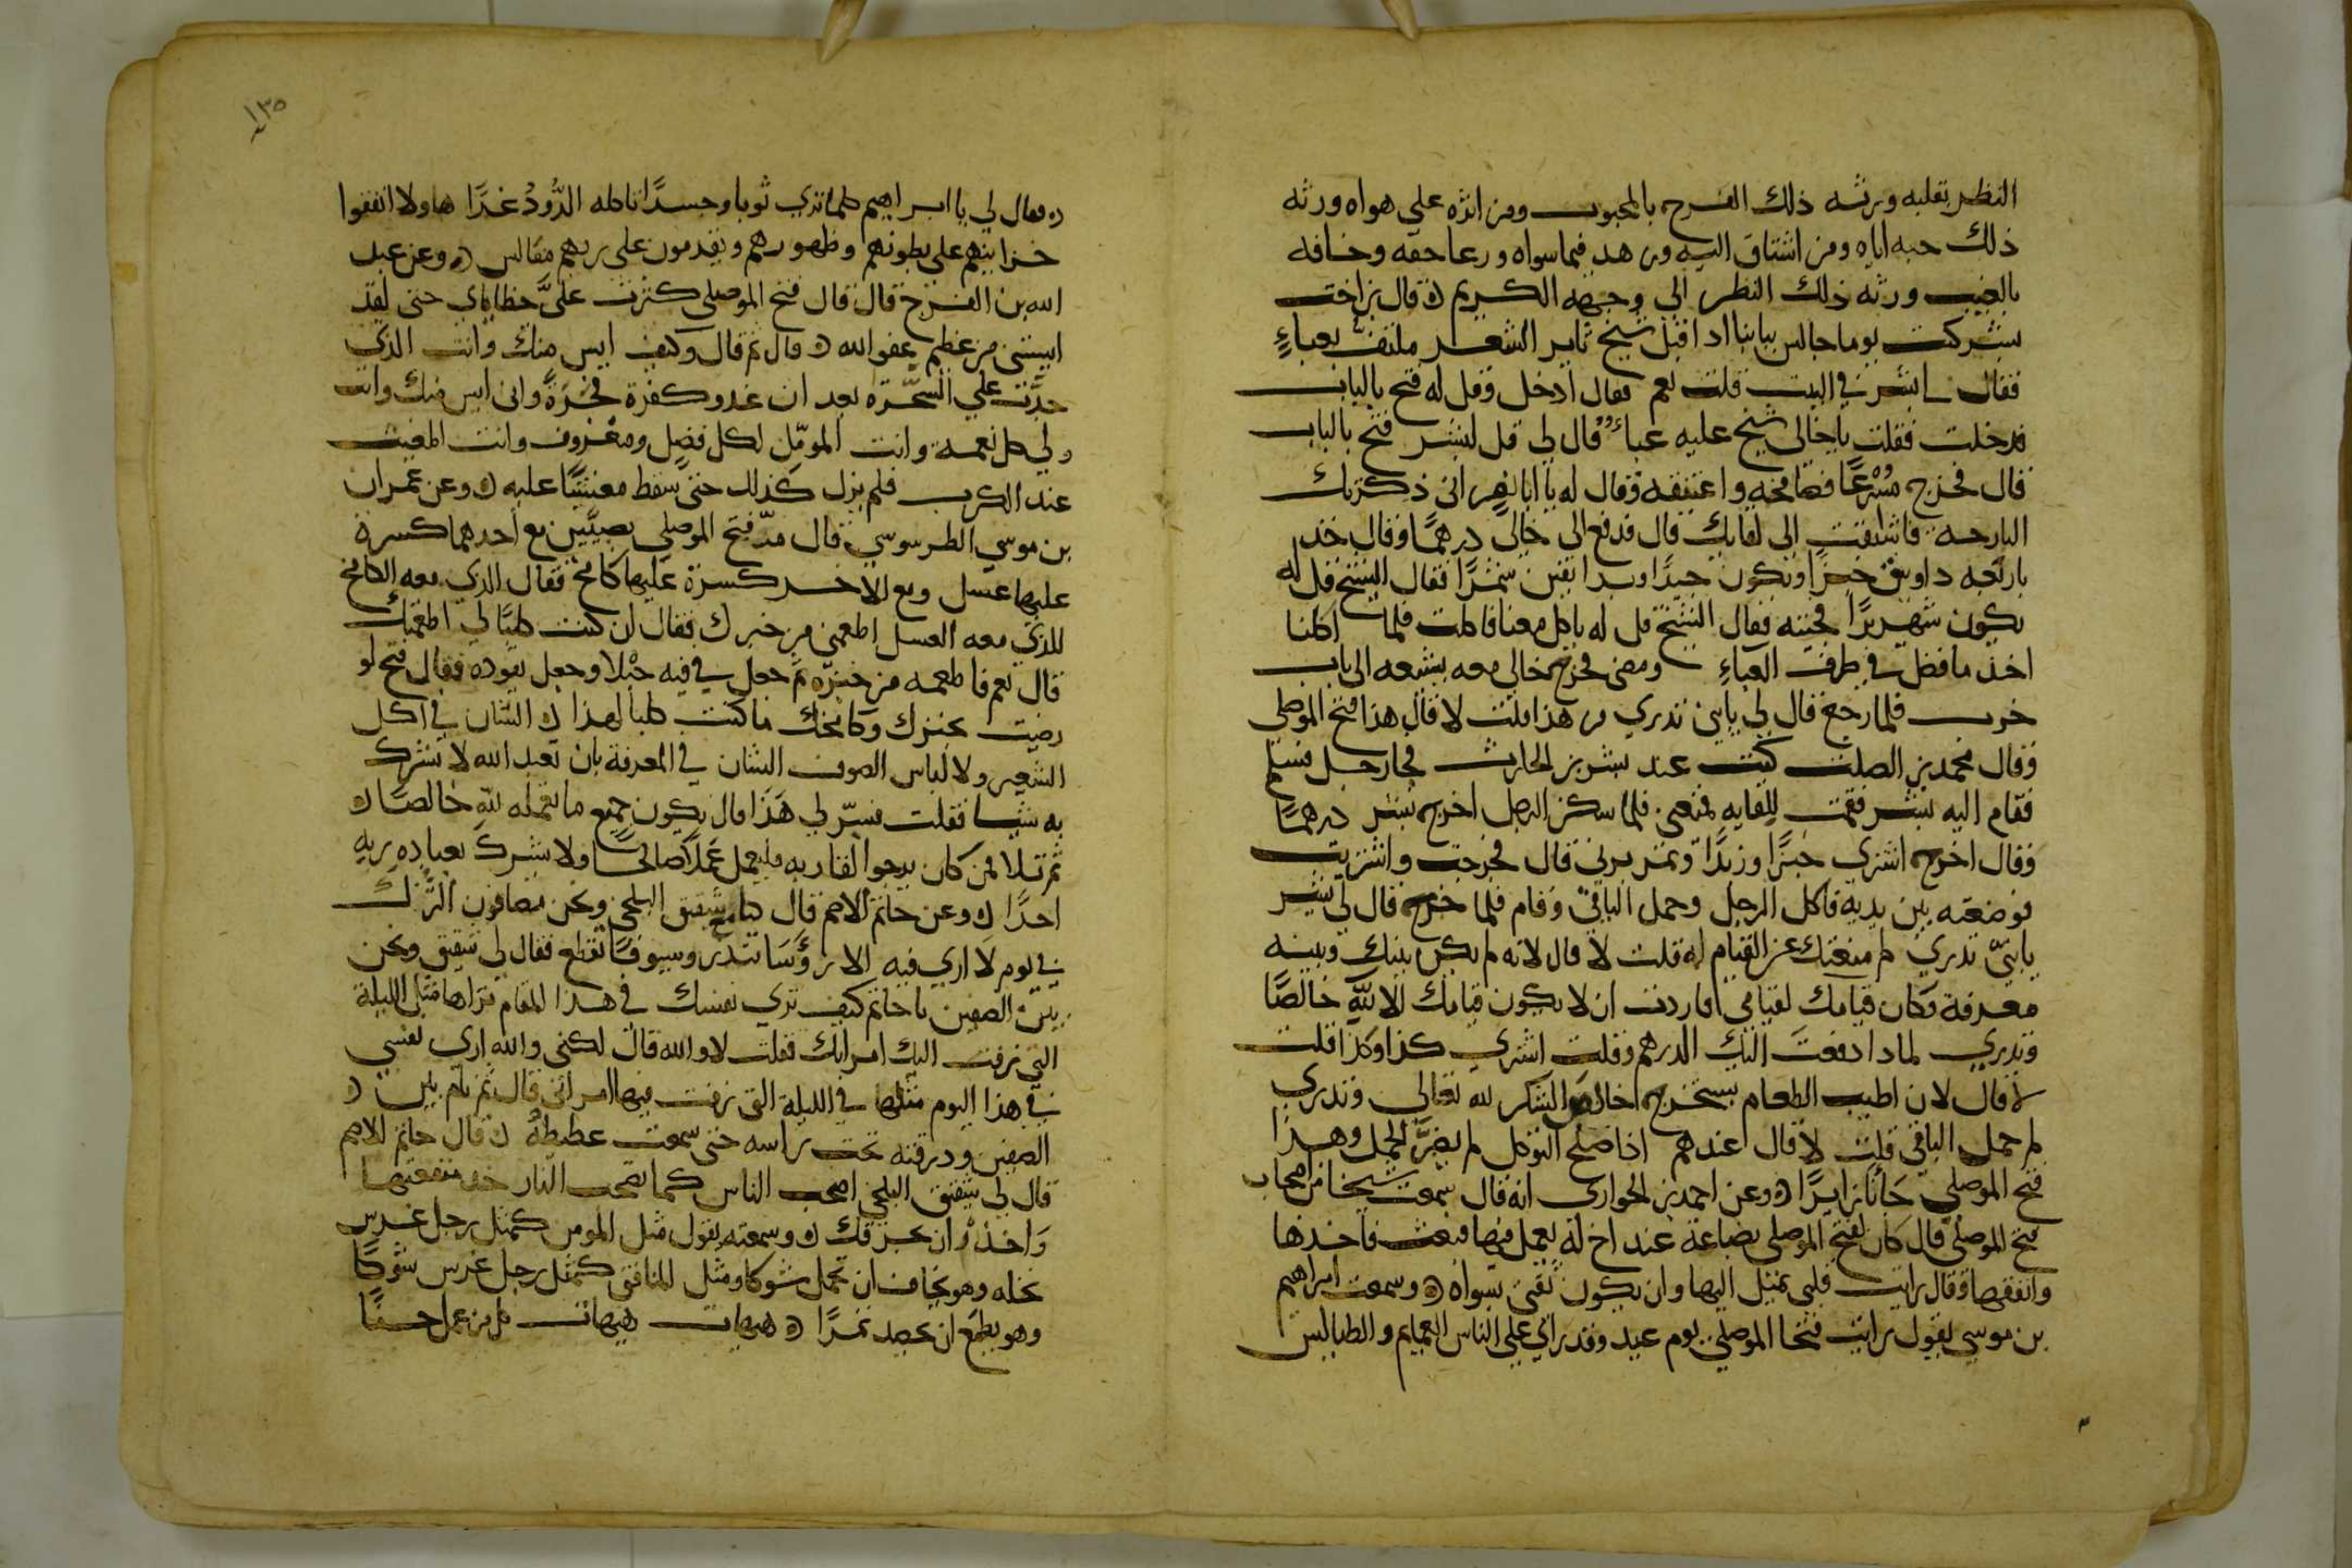 النظر بقلبه ورثه ذلك الفرح بالمحبوب ومن اثره على هواه ورثه
ذلك حبه اياه ومن اشتاق اليه وزهد فيما سواه ورعا حقه وخافه
بالغيب ورثه ذلك النظر الى وجهه الكريم قال بن اخت
بشر كنت يوما جالس ببابنا اد اقبل شيخ ثاير الشعر ملتف بعباء
فقال لى بشر في البيت قلت نعم فقال ادخل وقل له فتح بالباب
فدخلت فقلت يا خالى شيخ عليه عباء قال لى قل لبشر فتح بالباب
قال فخرج مسرعا فصافحه واعتنقه وقال له يا ابا نصر انى ذكرتك
البارحه فاشتقت الى لقايك قال فدفع الى خالى درهما وقال خد
باربعه دوانيق خبزا ويكون جيدا وبدانقين تمرا فقال الشيخ قل له
يكون شهريزا فجيته فقال الشيخ قل له ياكل معنا فاكلت فلما اكلنا
اخد ما فضل في طرف العباء ومضى فخرج خالى معه يشيعه الى باب
حرب فلما رجع قال لى يابنى تدري من هذا قلت لا قال هذا فتح الموصلى
وقال محمد بن الصلت كنت عند بشر بن الحارث فجا رجل فسلم
فقام اليه بشر فقمت للقايه فمنعنى فلما سكن الرجل اخرج بشر درهما
وقال اخرج اشترى خبزا وزبدا وتمر برنى قال فخرجت واشتريت
فوضعته بين يديه فاكل الرجل وحمل الباقى وقام فلما خرج قال لى بشر
يا بنى تدري لم منعتك عن القيام له قلت لا قال لانه لم يكن بينك وبينه
معرفة وكان قيامك لقيامى فاردت ان لا يكون قيامك الا لله خالصا
وتدري لمادا دفعت اليك الدرهم وقلت اشترى كذا وكذا قلت
لا قال لان اطيب الطعام يستخرج خالص الشكر لله تعالى وتدري
لم حمل الباقى قلت لا قال عندهم اذا صلح التوكل لم يضر الحمل وهذا
فتح الموصلى جانا زايرا وعن احمد بن الحوارى انه قال سمعت شيخا من اصحاب
فتح الموصلى قال كان لفتح الموصلى بضاعة عند اخ له يعمل فيها فبعث فاخذها
وانفقها وقال رايت قلبى يميل اليها وان يكون ثقتى سواه وسمعت ابراهيم
بن موسى يقول رايت فتحا الموصلى يوم عيد وقد راى على الناس العمايم والطيالس
١٣٥
فقال لى يا ابراهيم كلما ترى ثوبا وجسدا تاكله الدود غدا هاولا انفقوا
خزاينهم على بطونهم وظهورهم ويقدمون على ربهم مفاليس وعن عبد
الله بن الفرج قال قال فتح الموصلى كثرت على خطاياى حتى لقد
ايستنى من عظيم عفو الله قال ثم قال وكيف ايس منك وانت الذى
جدت على السحرة بعد ان غدو كفرة فجرة وانى ايس منك وانت
ولى كل نعمه وانت المومل لكل فضل ومعروف وانت المغيث
عند الكرب فلم يزل كذلك حتى سقط مغشيا عليه وعن عمران
بن موسى الطرسوسى قال مر فتح الموصلى بصبيين مع احدهما كسرة
عليها عسل ومع الاخر كسرة عليها كامخ فقال الذى معه الكامخ
للذى معه العسل اطعمنى من خبزك فقال ان كنت كلبا لى اطعمتك
قال نعم فاطعمه من خبزه ثم جعل في فيه حبلا وجعل يقوده فقال فتح لو
رضيت بخبزك وكامخك ما كنت كلبا لهذا الشان في اكل
الشعير ولا لباس الصوف الشان في المعرفة بان تعبد الله لا تشرك
به شيا فقلت فسر لى هذا قال يكون جميع ما تعمله لله خالصا
ثم تلا فمن كان يرجوا لقا ربه فليعمل عملا صالحا ولا يشرك بعباده ربه
احدا وعن حاتم الاصم قال كنا مع شقيق البلخى ونحن مصافون الترك
في يوم لا ارى فيه الا رؤسا تندر وسيوفا تقطع فقال لى شقيق ونحن
بين الصفين يا حاتم كيف ترى نفسك في هذا المقام تراها مثل الليلة
التى زفت اليك امراتك فقلت لا والله قال لكنى والله ارى نفسى
في هذا اليوم مثلها في الليلة التى زفت فيها امراتى قال ثم نام بين
الصفين ودرقته تحت راسه حتى سمعت غطيطه قال حاتم الاصم
قال لى شقيق البلخى اصحب الناس كما تصحب النار خد منفعتها
واحذر ان تحرقك وسمعته يقول مثل المومن كمثل رجل غرس
نخله وهو يخاف ان تحمل شوكا ومثل المنافق كمثل رجل غرس شوكا
وهو يطمع ان يحصد تمرا هيهات هيهات كل من عمل حسنا